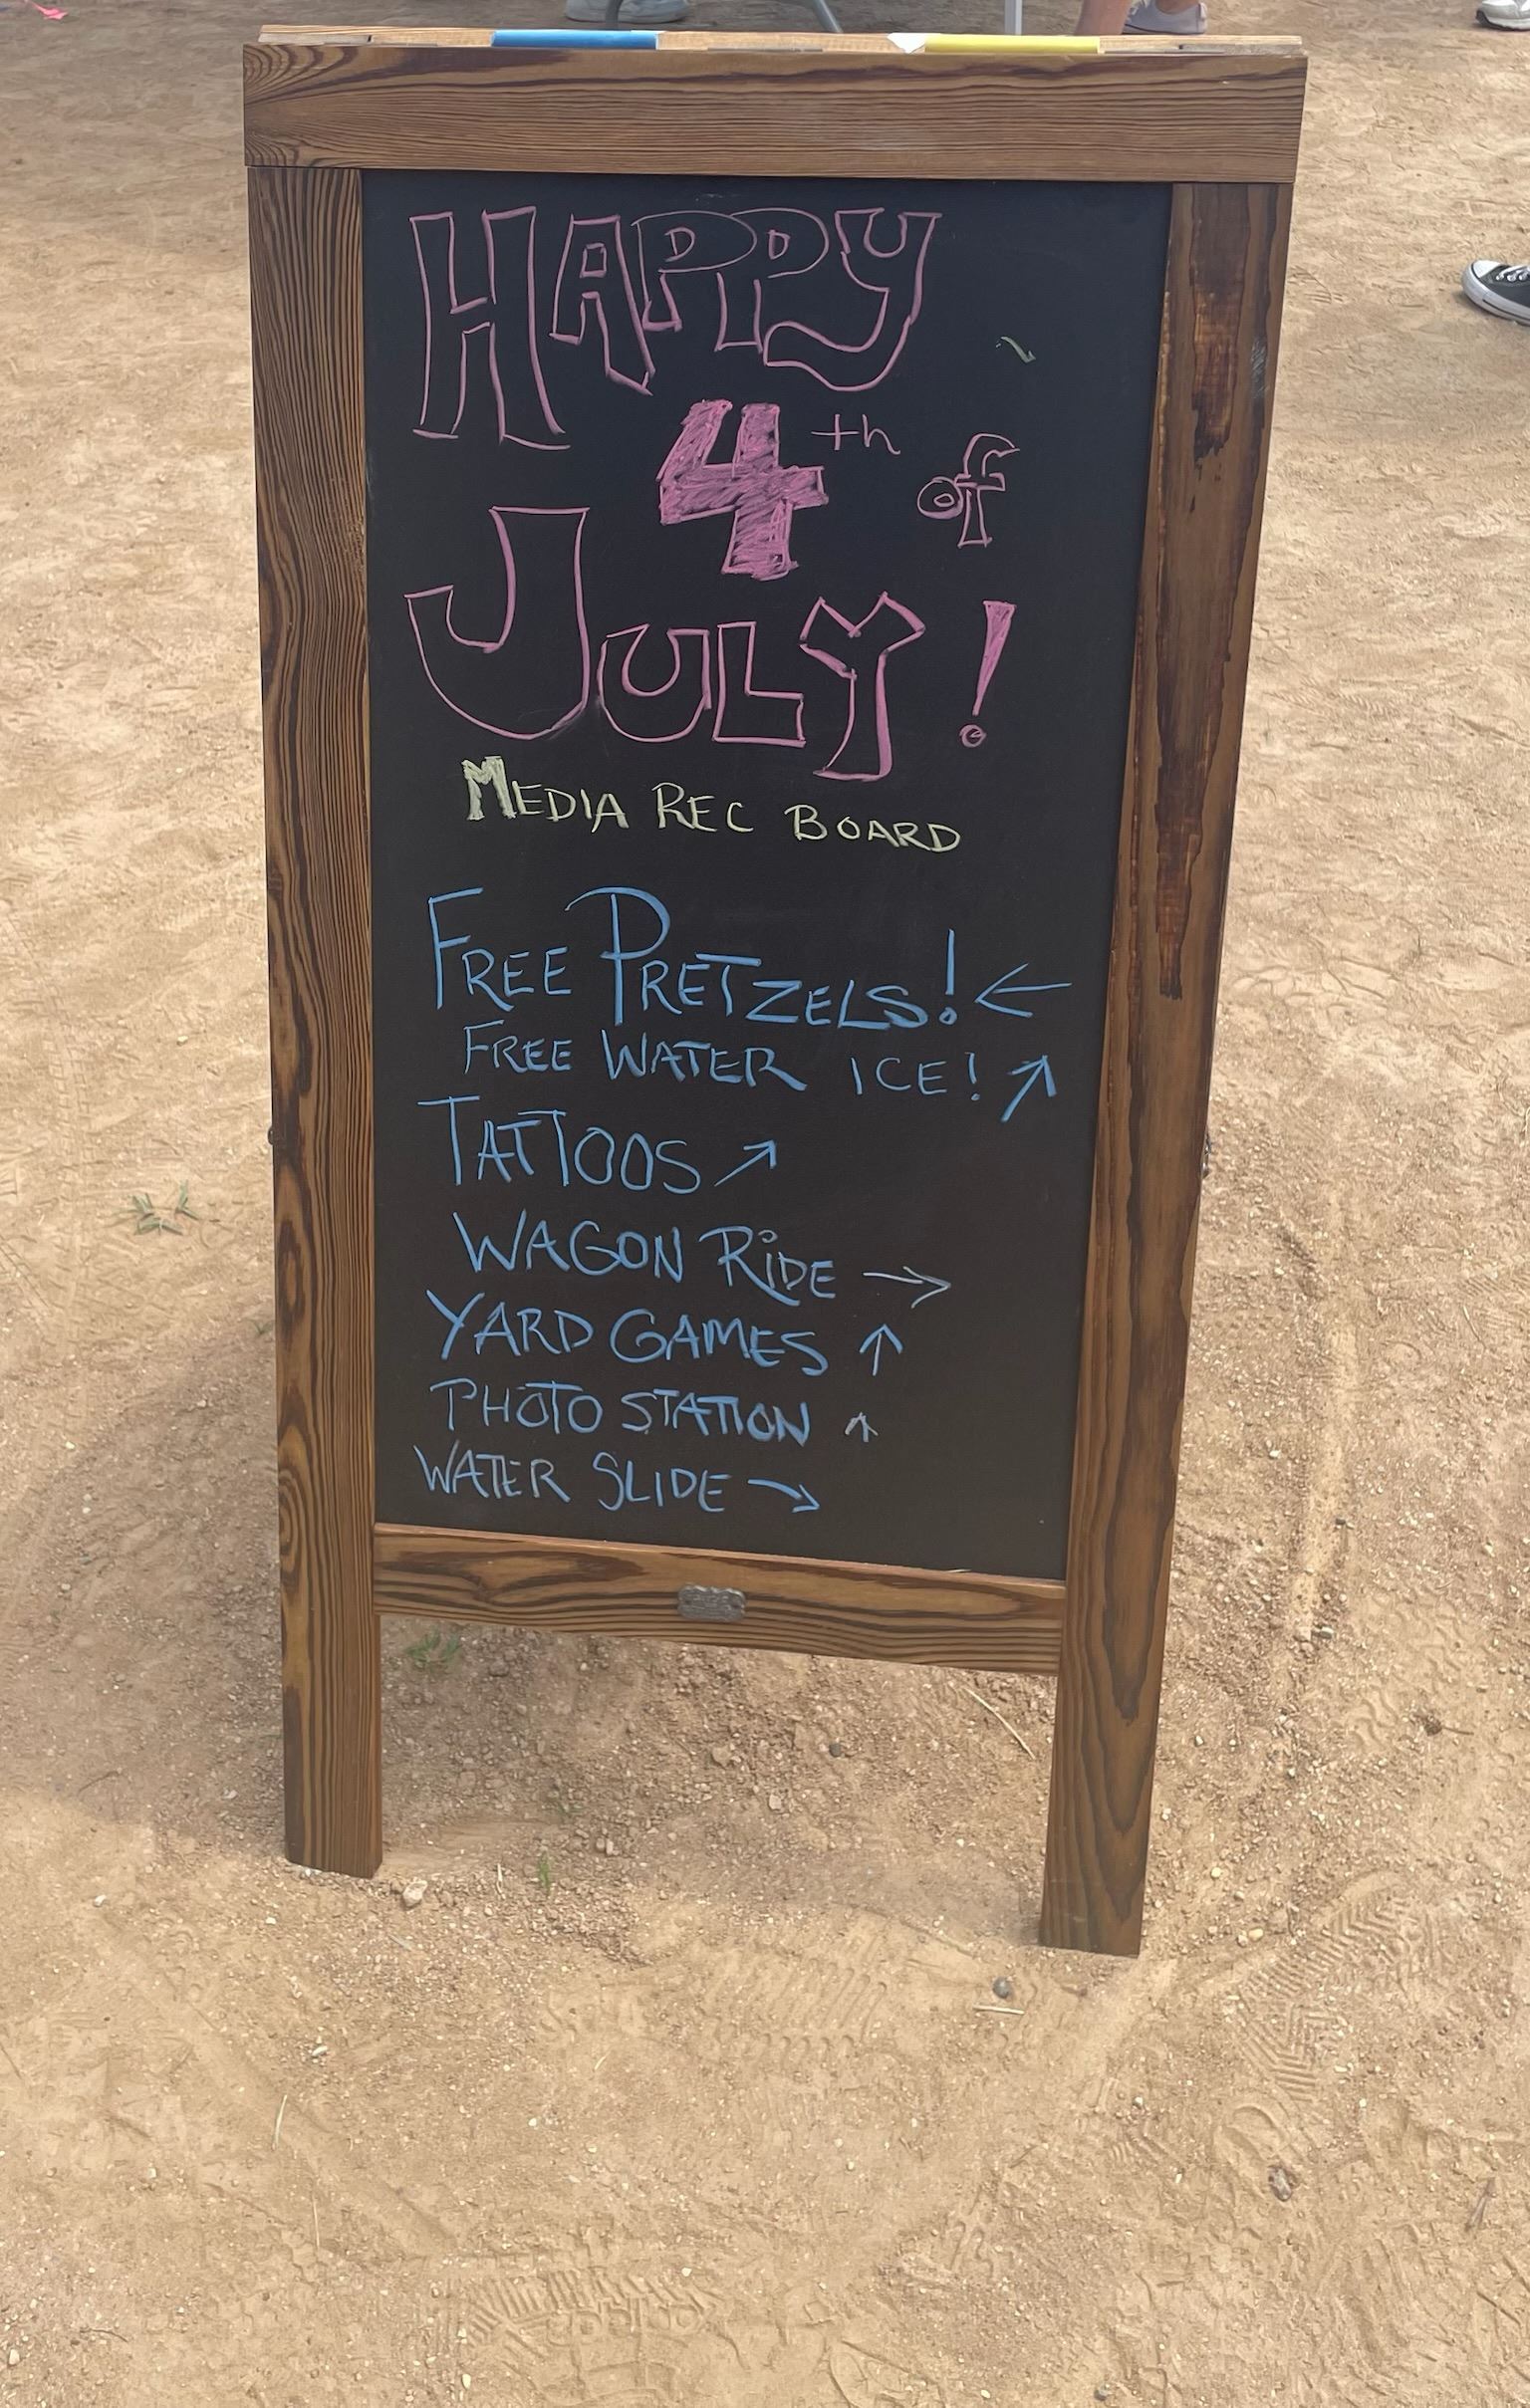 HAPPY
4th of
JULY!
MEDIA REC BOARD
FREE PRETZELS! ←
FREE WATER ICE! ↗
TATTOOS ↗
WAGON RIDE →
YARD GAMES ↑
PHOTO STATION ↑
WATER SLIDE ↘